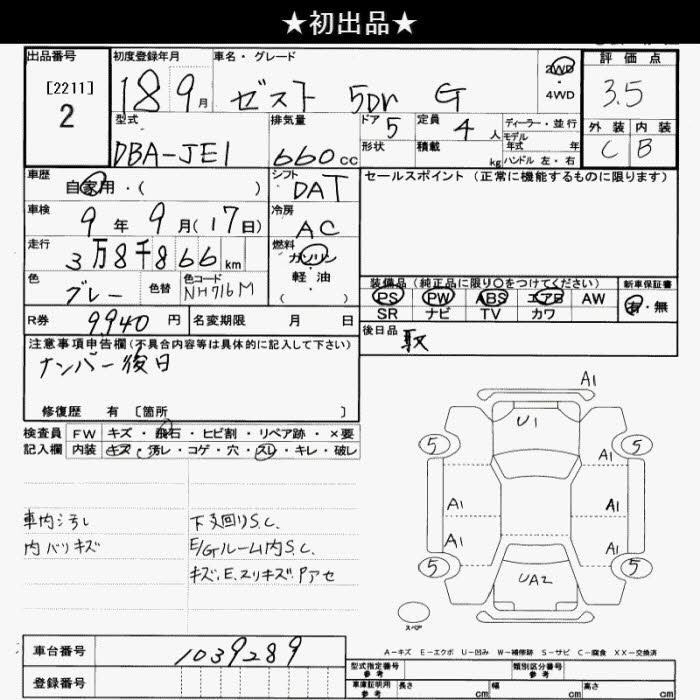 ★初出品★
出品番号 初度登録年月 車名・グレード 評価点
[2211] 18 9月 ゼスト 5Dr G 2WD・4WD 3.5
2
型式 排気量 ドア 定員 ディーラー・並行 外装 内装
DBA-JE1 660cc 5 4人 モデル年式 年 C B
形状 積載 kg ハンドル 左・右
車歴 シフト セールスポイント(正常に機能するものに限ります)
自家用・( ) DAT
車検 9年 9月(17日) 冷房 AC
走行 3万8千866km 燃料 ガソリン・軽油
( )
色 グレー 色替 色コード NH716M
装備品(純正品に限り○をつけてください) 新車保証書
PS PW ABS エアB AW 有・無
SR ナビ TV カワ
R券 9,940円 名変期限 月 日 後日品 取
注意事項申告欄(不具合内容等は具体的に記入して下さい)
ナンバー後日
修復歴 有 [箇所 ]
検査員 FW キズ・飛石・ヒビ割・リペア跡・×要
記入欄 内装 キズ・汚レ・コゲ・穴・スレ・キレ・破レ
A1
U1
5 5
A1
A1 A1
A1 A1
5 5
UA2
車内汚レ 下廻りS.C.
内バリキズ E/Gルーム内S.C.
キズ、E、スリキズ、Pアセ
スペア
A-キズ E-エクボ U-凹み W-補修跡 S-サビ C-腐食 XX-交換済
車台番号 1039289
登録番号
型式指定番号 参考 類別区分番号 参考
車庫証明用 参考 長さ cm 幅 cm 高さ cm